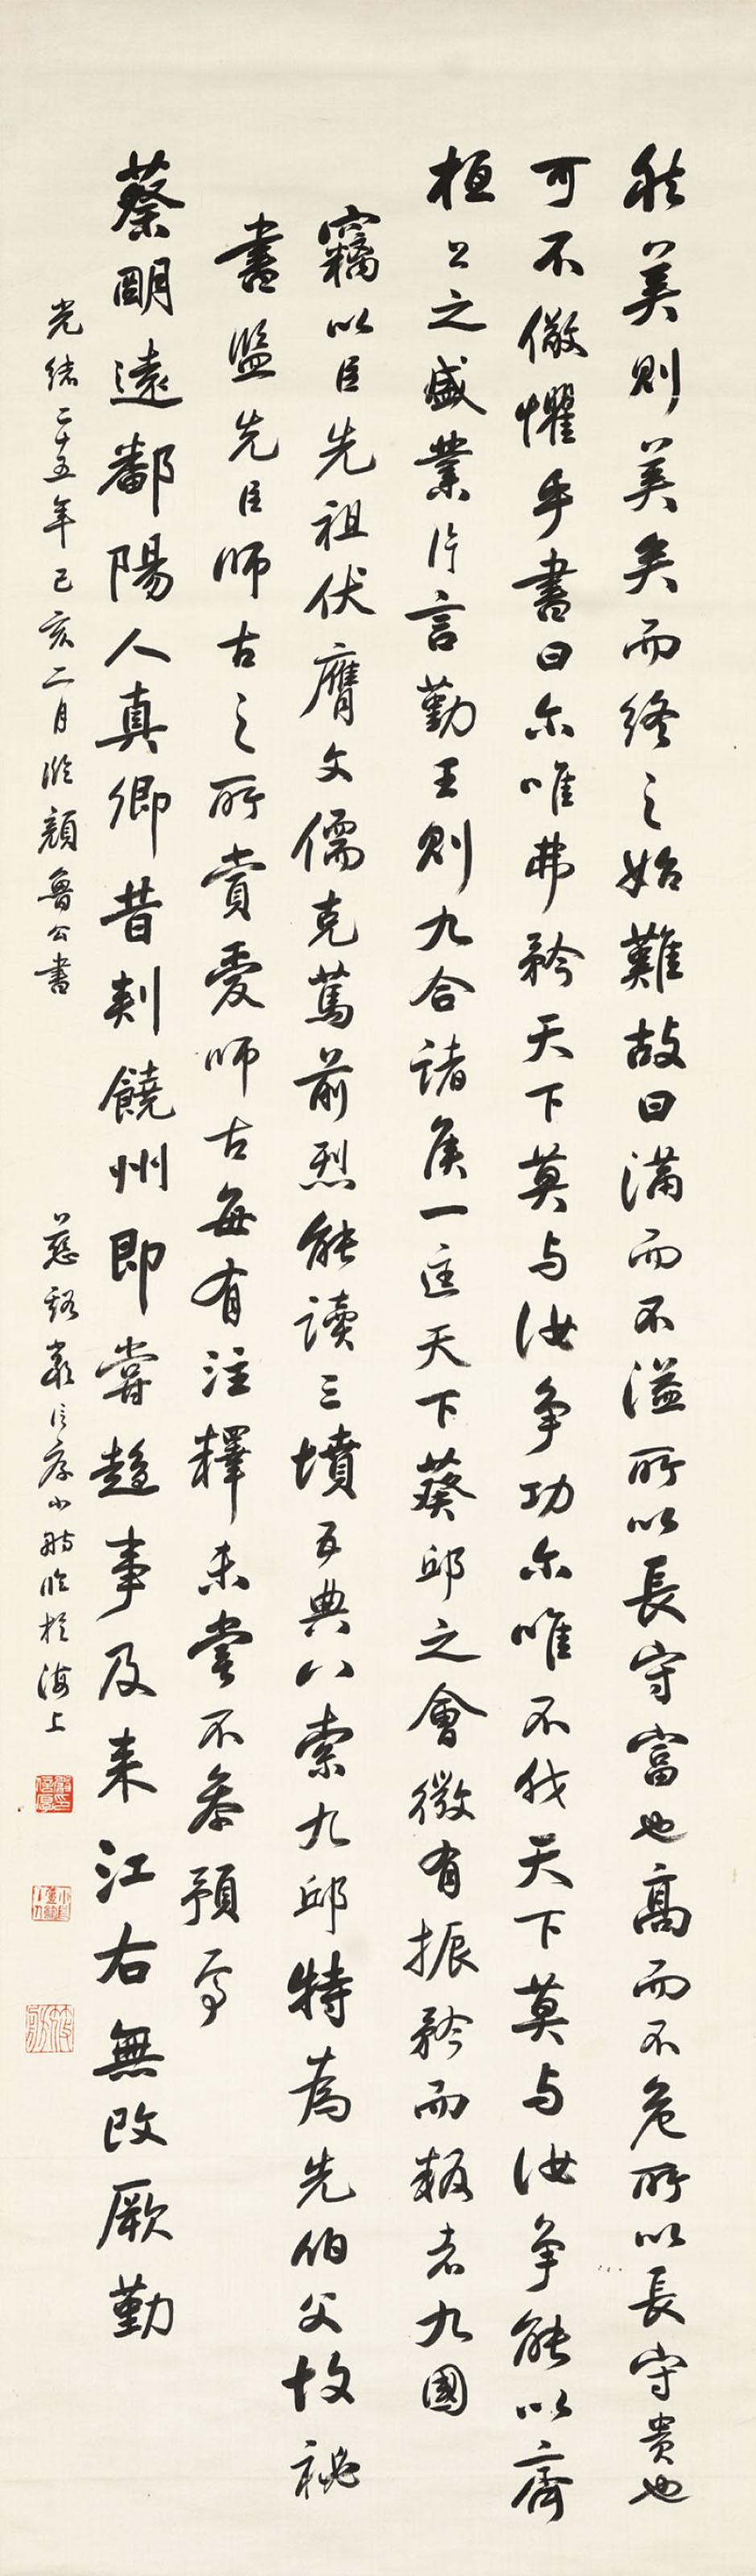 然美則美矣而終之始難故曰滿而不溢所以長守富也高而不危所以長守貴也
可不儆懼乎書曰尔唯弗矜天下莫与汝争功尔唯不伐天下莫与汝争能以齊
桓公之盛業片言勤王則九合諸侯一匡天下葵邱之會微有振矜而叛者九國
竊以臣先祖伏膺文儒克篤前烈能读三墳五典八索九邱特為先伯父故祕
書監先臣師古之所賞愛師古每有注釋未嘗不參預焉
蔡明遠鄱陽人真卿昔刺饒州即嘗趨事及来江右無改厥勤
光緒二十五年己亥二月臨顏魯公書
慈谿嚴信厚小舫臨於海上
嚴信厚印